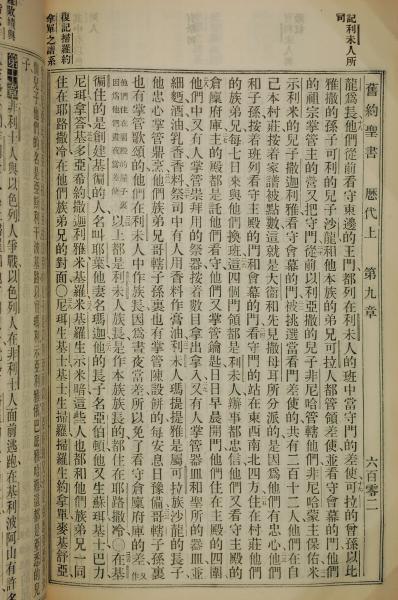 記利未人所
司
復記掃羅約
拿單之譜系
舊約聖書 歷代上 第九章 六百零二
龍爲長他們從前看守東邊的王門都列在利未人的班中當守門的差使可拉的曾孫以比
雅撒的孫子可利的兒子沙龍和他本族的弟兄可拉人都管領差使並看守會幕的門他們
的祖宗掌管主的營又把守門從前以利亞撒的兒子非尼哈管轄他們非尼哈蒙主保佑米
示利米的兒子撒迦利雅看守會幕的門被挑選當看門差使的共有二百十二人他們在自
己本村莊按着家譜被點數這就是大衛和先見撒母耳所分派的是因爲他們有忠心他們
和子孫按着班列看守主殿的門和會幕的門看門的站在東西南北四方住在村莊他們
的族弟兄每七日來與他們換班這四個門領都是利未人辦事都忠信他們又看守主殿的
倉廩府庫主的殿都是託他們看守他們又掌管鑰匙日日早晨開門他們住在主殿的四圍
他們中又有人掌管崇拜用的祭器按着數目拿出拿入又有人掌管器皿和聖所的器皿並
細麪酒油乳香香料祭司中有人用香料作膏油利未人瑪提提雅是屬可拉族沙龍的長子
他忠心掌管鼎烹他們族弟兄哥轄子孫裏也有掌管陳設餅的每安息日豫備哥轄子孫裏
也有掌管歌頌的他們在利未人中作族長因爲晝夜當差所以免了看守倉廩府庫的差
以上都是利未人族長是作本族族長的都住在耶路撒冷〇在基
徧住的是創建基徧的人名叫耶葉他妻名瑪迦他的長子名亞伯頓他又生蘇珥基士巴力
尼珥拿答基多亞希約撒迦利雅米基羅米基羅生示米暗這些人也都和他們族弟兄一同
住在耶路撒冷在他們族弟兄的對面〇尼珥生基士基士生掃羅掃羅生約拿單麥基舒亞
非利士人與以色列人爭戰以色列人在非利士人面前逃跑在基利波阿山有許多